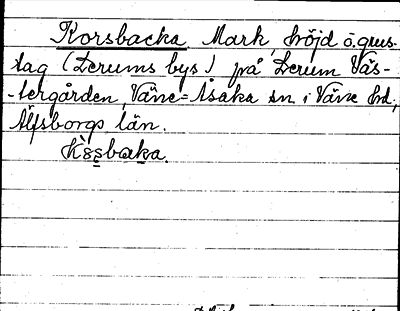 Korsbacka Mark, höjd o. grus-
tag (Derums bys!) på Derum Väs-
-tergården, Väne-Åsaka sn i Väne hd,
Älfsborgs län.